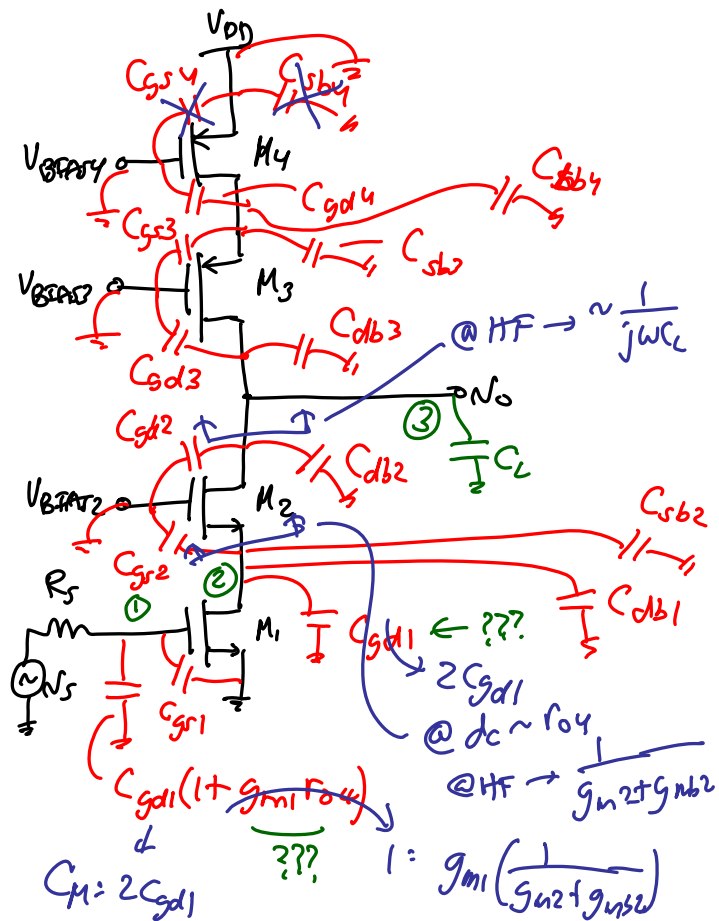 V_DD
C_gs4
C_sb4
V_BIAS4
M4
C_gd4
C_sb4
C_gs3
C_sb3
V_BIAS3
M3
C_db3
@ HF → ~ 1/(jωC_L)
C_gd3
v_o
③
C_gd2
C_L
C_db2
V_BIAS2
M2
C_sb2
C_gs2
②
R_s
①
M1
C_gd1 ← ???
C_db1
v_s
C_gs1
2C_gd1
@ dc ~ r_o4
@HF → 1/(g_m2+g_mb2)
C_gd1(1+g_m1 r_o4)
???
1 = g_m1(1/(g_m2+g_mb2))
C_M = 2C_gd1